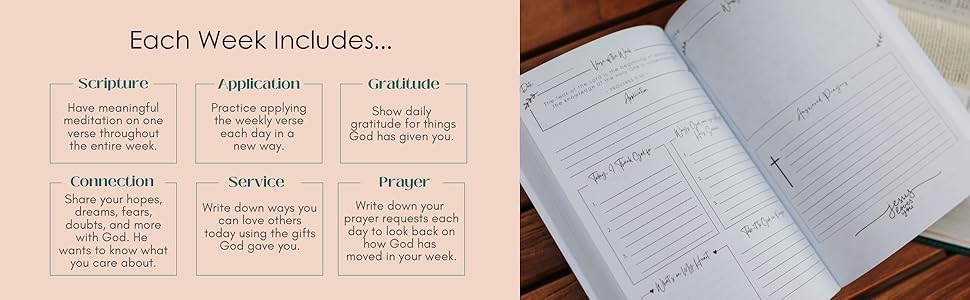 Each Week Includes...
Scripture
Have meaningful
meditation on one
verse throughout
the entire week.
Application
Practice applying
the weekly verse
each day in a
new way.
Gratitude
Show daily
gratitude for things
God has given you.
Connection
Share your hopes,
dreams, fears,
doubts, and more
with God. He
wants to know what
you care about.
Service
Write down ways you
can love others
today using the gifts
God gave you.
Prayer
Write down your
prayer requests each
day to look back on
how God has
moved in your week.
Date:
Verse of the Week
The fear of the Lord is the beginning of
the knowledge of the Holy One is
Proverbs 9:10
Application
Today, I Thank God for
1.
2.
3.
What's on My Heart
Notes
Answered Prayers
Jesus
loves
you